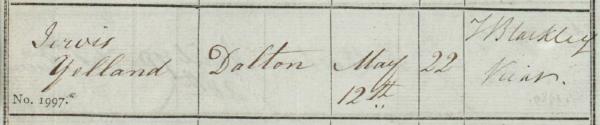 Jervis
Yelland
No. 1997.
Dolton
May
12th
22
T Blackley
Vicar.